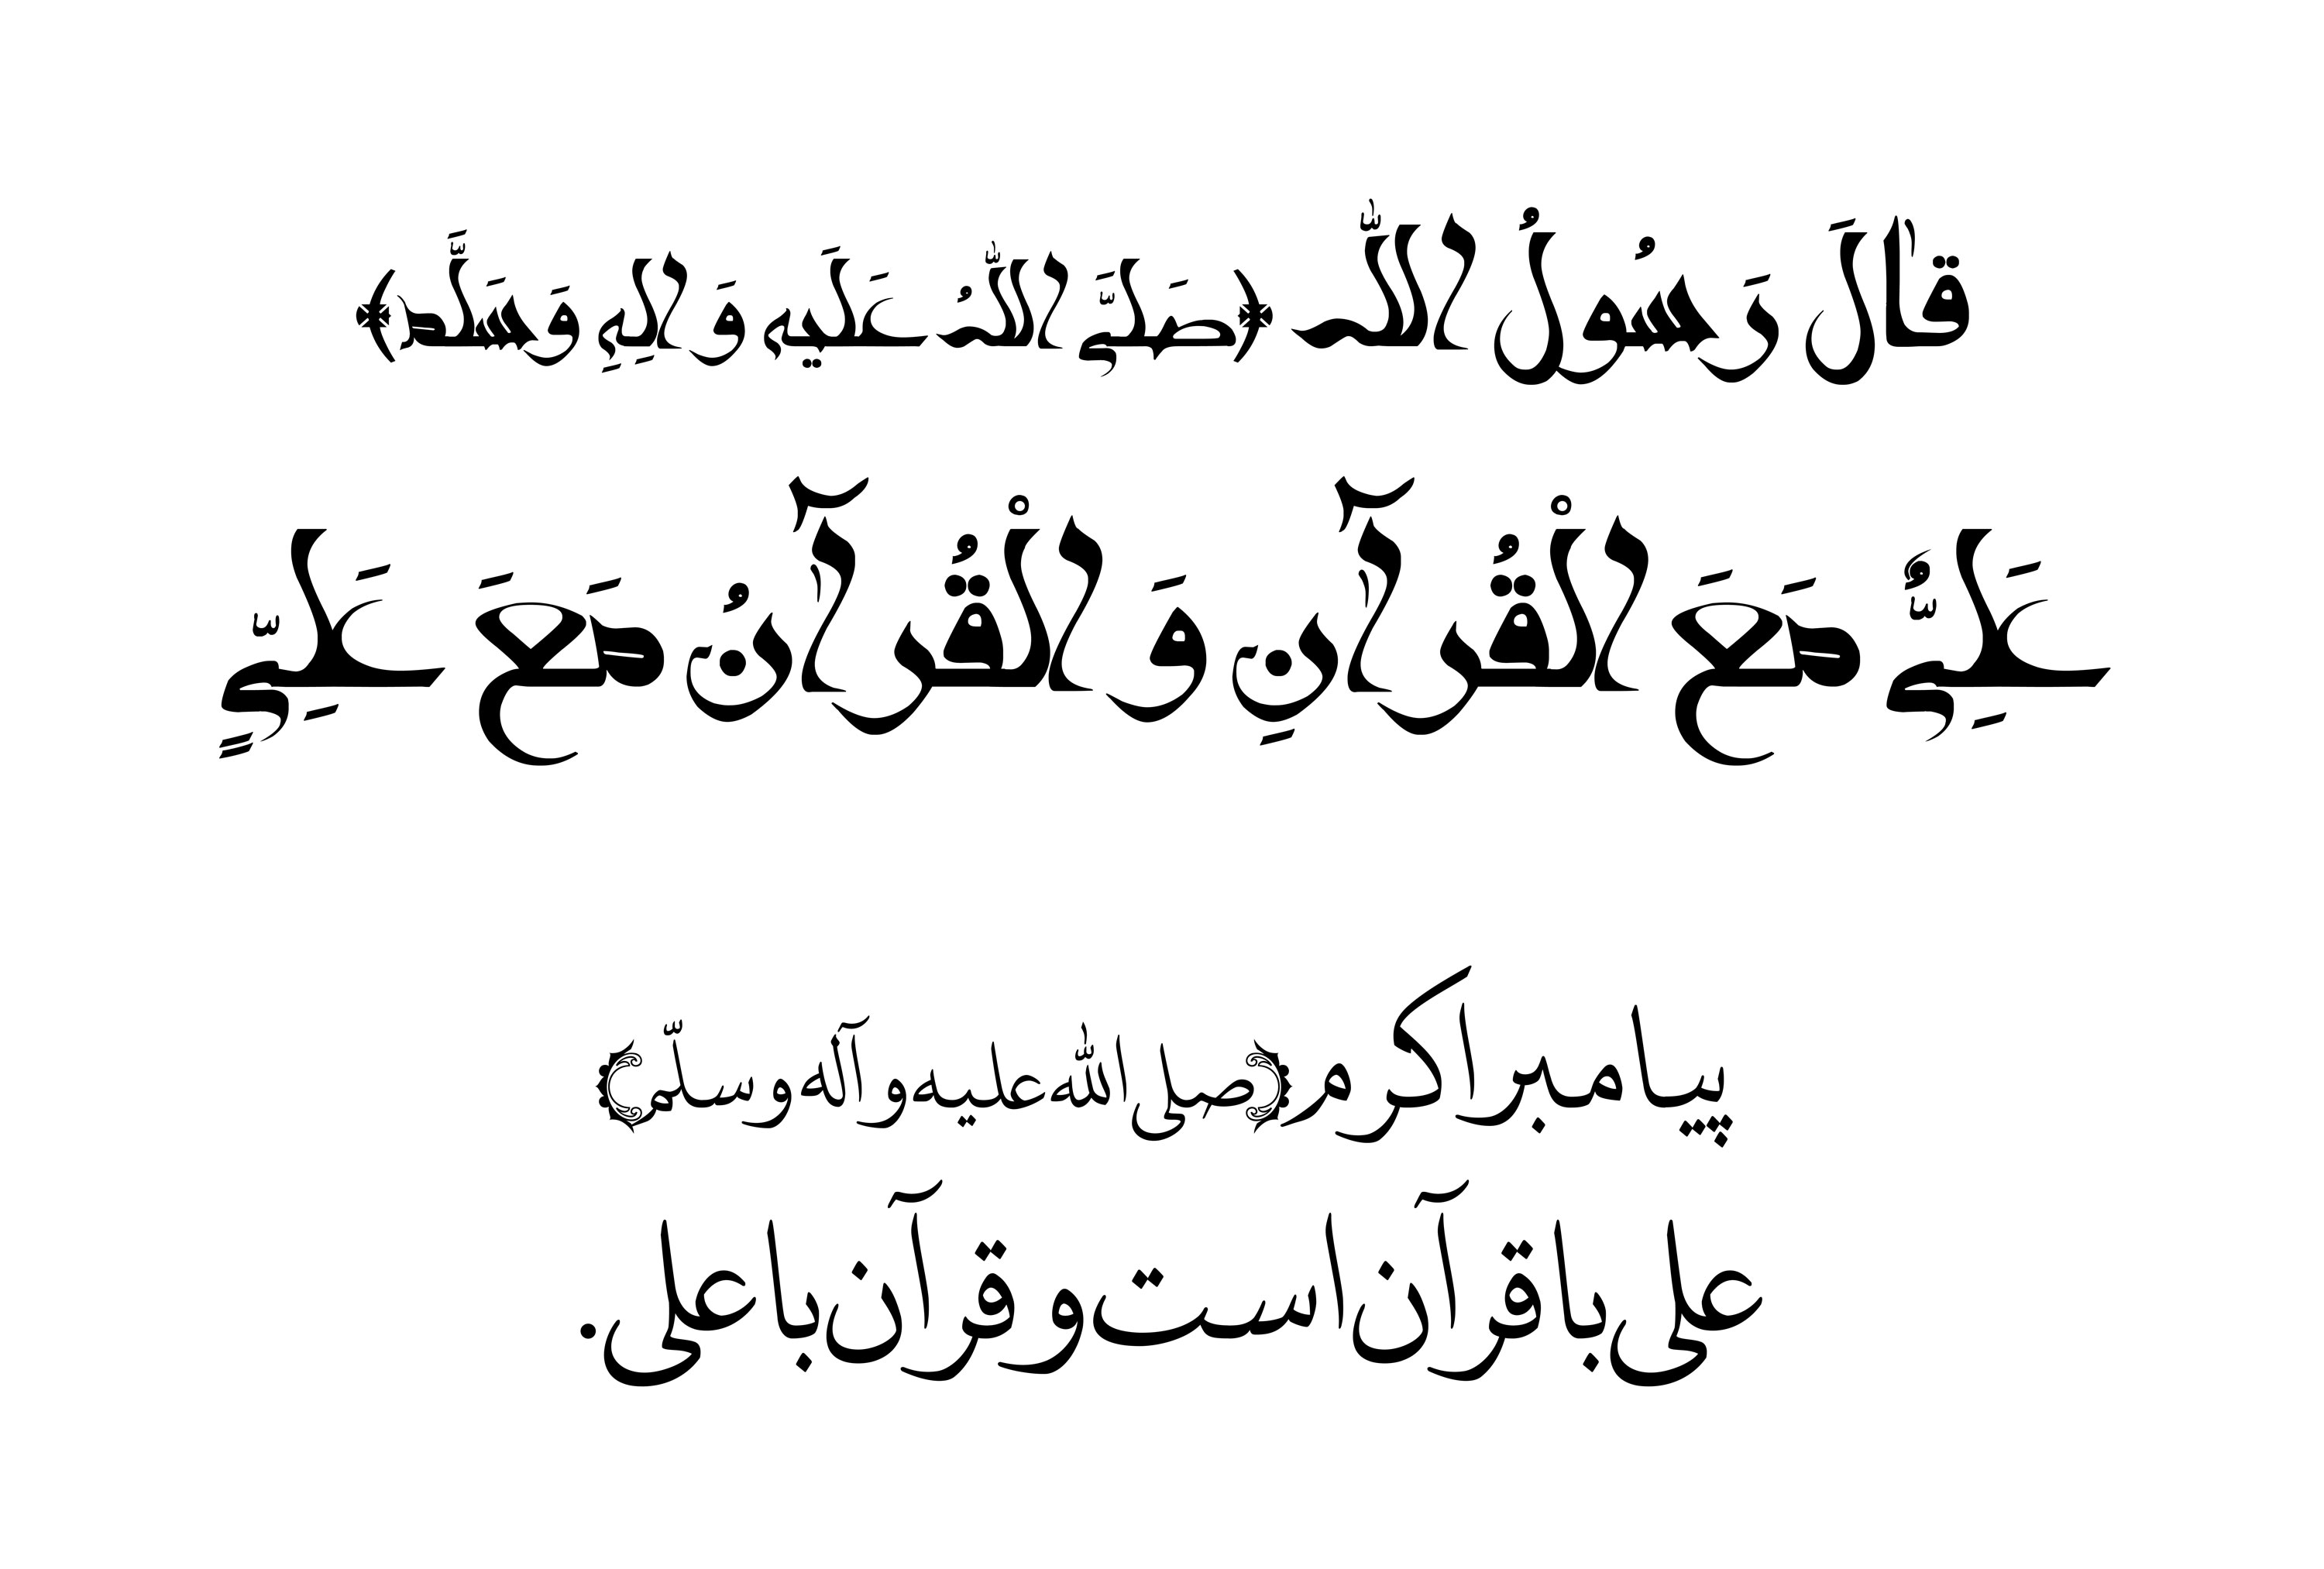 قالَ رَسُولُ اللّٰه (صَلَّی اللّٰهُ عَلَیهِ وَ الِهِ وَ سَلَّمَ)
عَلِیٌّ مَعَ الْقُرآنِ وَ الْقُرآنُ مَعَ عَلِیٍّ
پیامبر اکرم (صلی اللّٰه علیه و آله و سلّم)
علی با قرآن است و قرآن با علی.